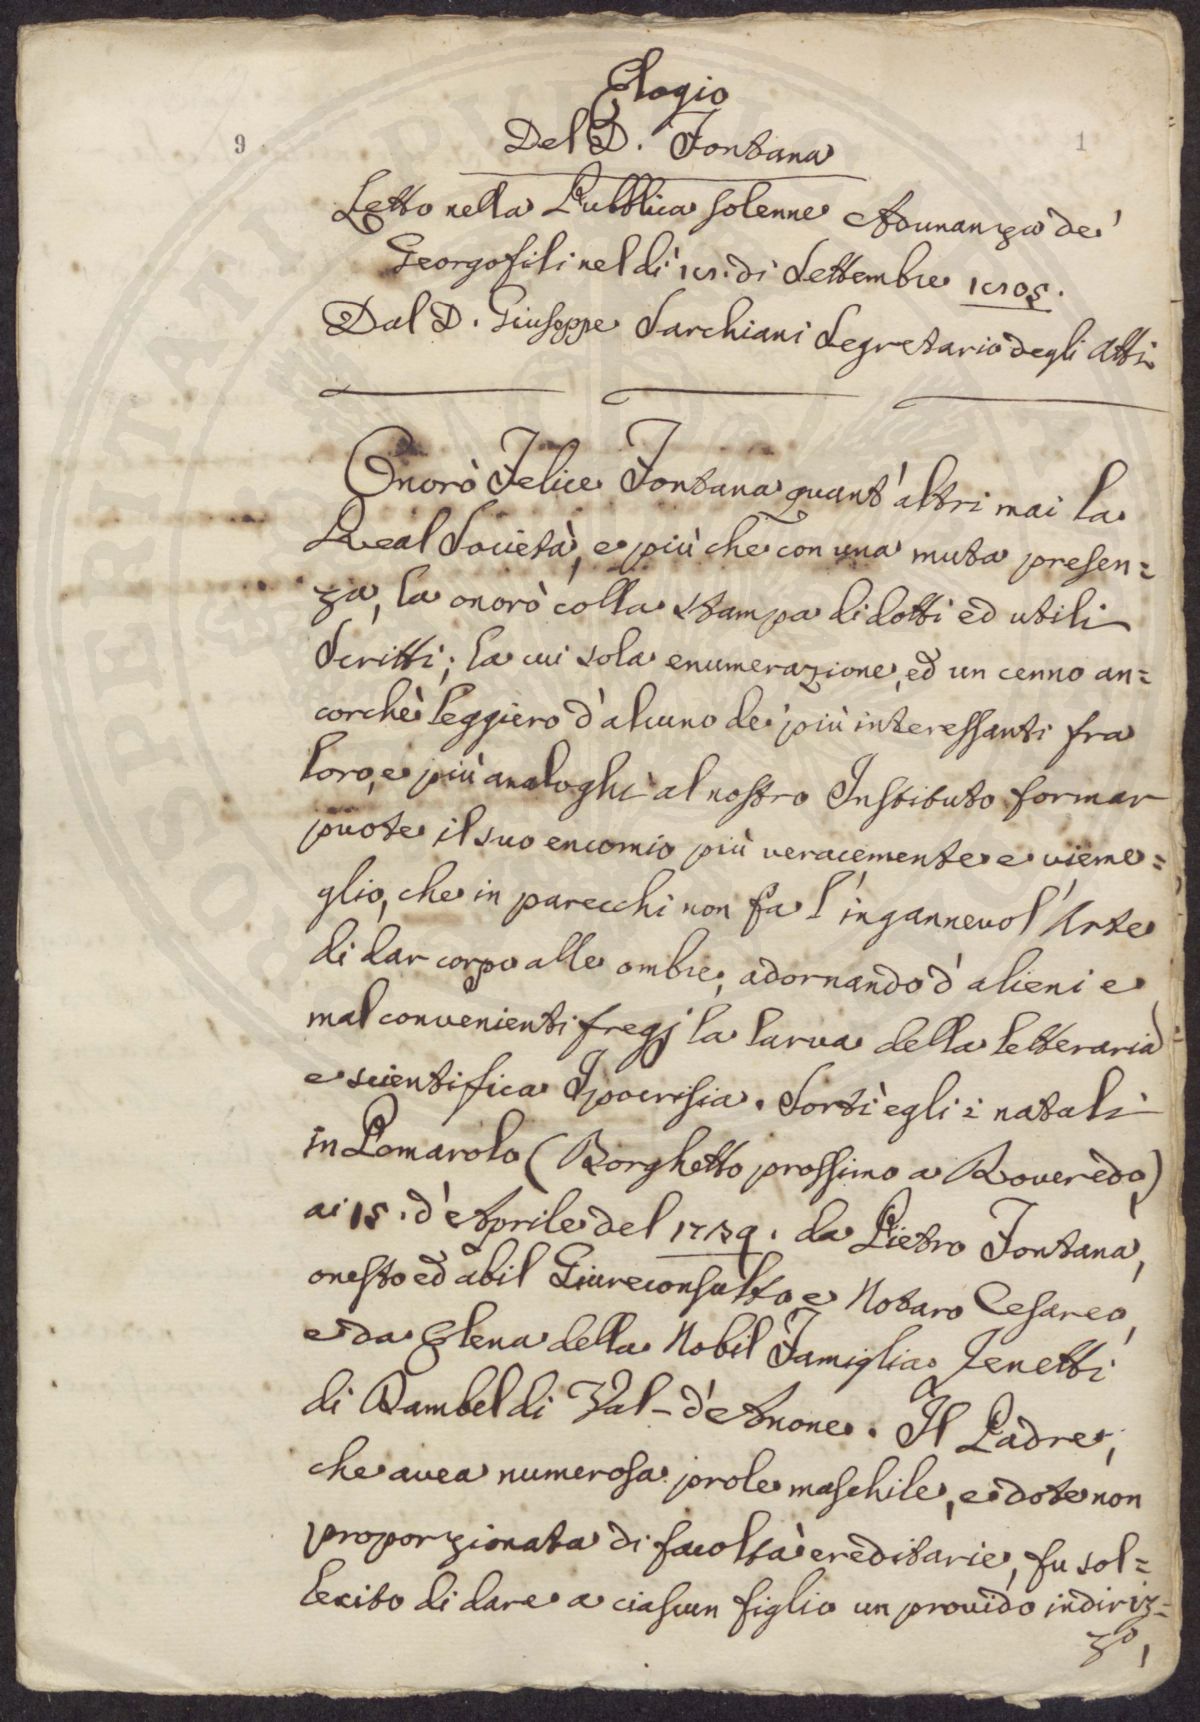 Elogio
9
Del D. Fontana
1
Letto nella Pubblica solenne Adunanza de'
Georgofili nel dì di Settembre 1805.
Dal D. Giuseppe Sarchiani Segretario degli Atti
Onorò Felice Fontana quant'altri mai la
Real Società, e più che con una muta presen=
za, la onorò colla stampa di dotti ed utili
Scritti; la cui sola enumerazione, ed un cenno an=
corchè leggiero d'alcuno de' più interessanti fra
loro, e più analoghi al nostro Instituto formar
puote il suo encomio più veracemente e vieme=
glio, che in parecchi non fa l'ingannevol'Arte
di dar corpo alle ombre, adornando d'alieni e
mal convenienti fregj la larva della letteraria
e scientifica Ipocrisia. Sortì egli i natali
in Pomarolo (Borghetto prossimo a Roveredo)
ai 15. d'Aprile del 1730. da Pietro Fontana,
onesto ed abil Giureconsulto e Notaro Cesareo,
e da Elena della Nobil Famiglia Jenetti
di Rambel di Val-d'Anone. Il Padre,
che avea numerosa prole maschile, e dote non
proporzionata di facoltà ereditarie, fu sol=
lecito di dare a ciascun figlio un provido indiriz=
zo,